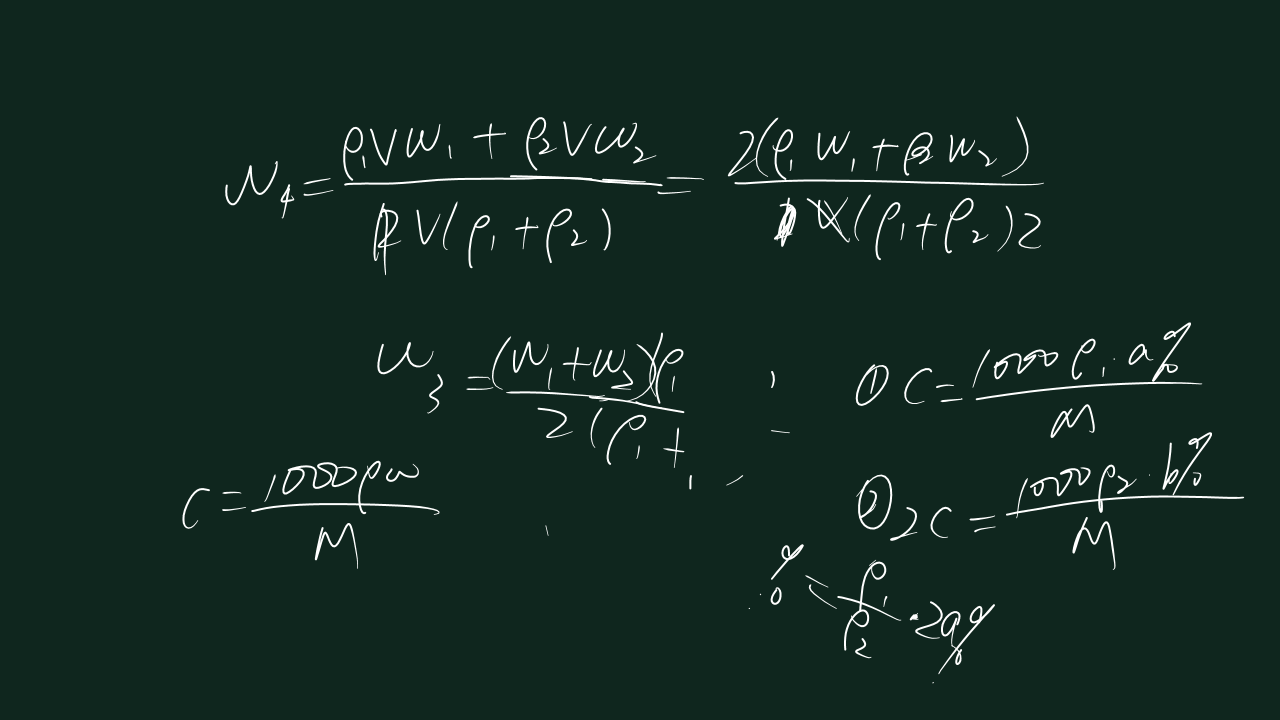 w₄ = (ρ₁Vw₁ + ρ₂Vw₂) / (V(ρ₁ + ρ₂)) = 2(ρ₁w₁ + ρ₂w₂) / ((ρ₁ + ρ₂)2)
w₃ = (w₁ + w₂)ρ₁ / 2(ρ₁ +
① C = 1000ρ₁·a% / M
C = 1000ρw / M
② 2C = 1000ρ₂·b% / M
% = ρ₁/ρ₂ · 2a%